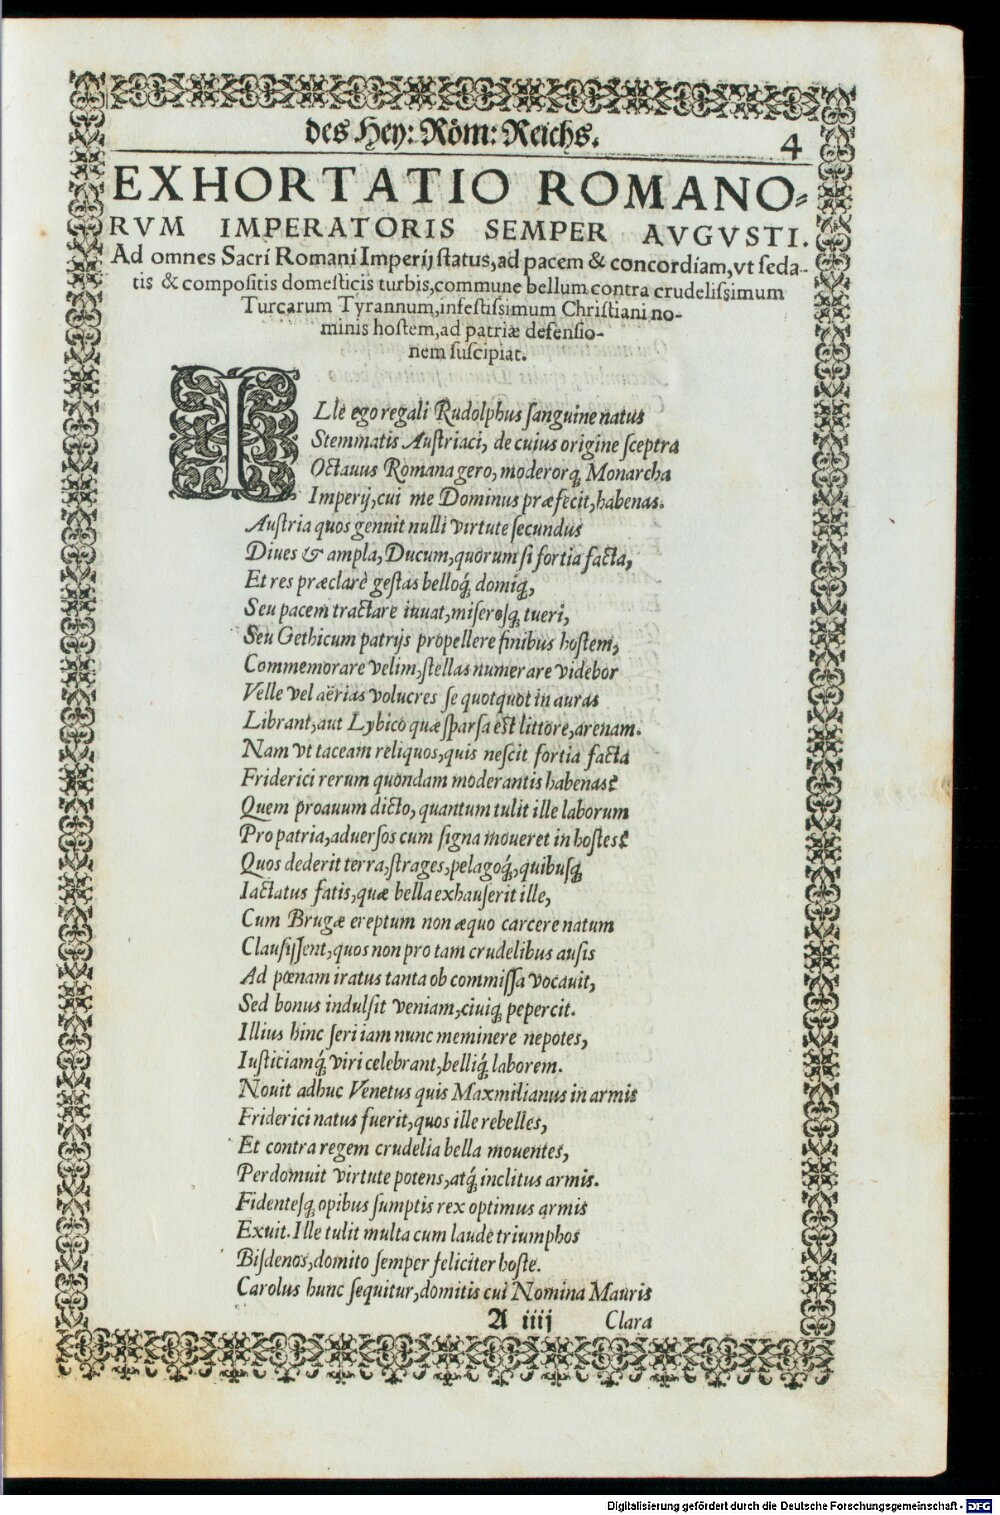 des Hey: Röm: Reichs.
4
EXHORTATIO ROMANO-
RVM IMPERATORIS SEMPER AVGVSTI.
Ad omnes Sacri Romani Imperij status, ad pacem & concordiam, vt seda-
tis & compositis domesticis turbis, commune bellum contra crudelissimum
Turcarum Tyrannum, infestissimum Christiani no-
minis hostem, ad patriæ defensio-
nem suscipiat.
ILle ego regali Rudolphus sanguine natus
Stemmatis Austriaci, de cuius origine sceptra
Octauus Romana gero, moderorq́ Monarcha
Imperij, cui me Dominus præfecit, habenas.
Austria quos genuit nulli virtute secundus
Diues & ampla, Ducum, quorum si fortia facta,
Et res præclarè gestas belloq́ domiq́,
Seu pacem tractare iuuat, miserosq́ tueri,
Seu Gethicum patrijs propellere finibus hostem,
Commemorare velim, stellas numerare videbor
Velle vel aërias volucres se quotquot in auras
Librant, aut Lybico quæ sparsa est littore, arenam.
Nam vt taceam reliquos, quis nescit fortia facta
Friderici rerum quondam moderantis habenas?
Quem proauum dicto, quantum tulit ille laborum
Pro patria, aduersos cum signa moueret in hostes?
Quos dederit terra, strages, pelagoq́, quibusq́
Iactatus fatis, quæ bella exhauserit ille,
Cum Brugæ ereptum non æquo carcere natum
Clausissent, quos non pro tam crudelibus ausis
Ad pœnam iratus tanta ob commissa vocauit,
Sed bonus indulsit veniam, ciuiq́ pepercit.
Illius hinc seri iam nunc meminere nepotes,
Iusticiamq́ viri celebrant, belliq́ laborem.
Nouit adhuc Venetus quis Maxmilianus in armis
Friderici natus fuerit, quos ille rebelles,
Et contra regem crudelia bella mouentes,
Perdomuit virtute potens, atq́ inclitus armis.
Fidentesq́ opibus sumptis rex optimus armis
Exuit. Ille tulit multa cum laude triumphos
Bisdenos, domito semper feliciter hoste.
Carolus hunc sequitur, domitis cui Nomina Mauris
A iiij Clara
Digitalisierung gefördert durch die Deutsche Forschungsgemeinschaft - DFG